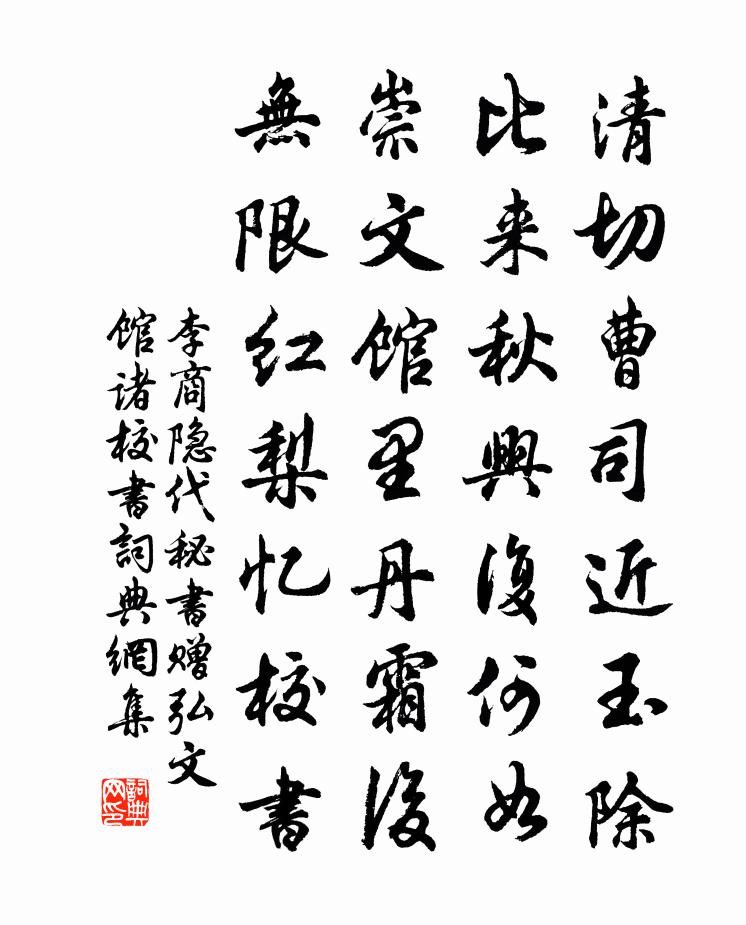 清切曹司近玉除
比来秋興復何如
崇文馆里丹霜後
無限红梨忆校書
李商隐代秘書赠弘文
馆诸校書詞典網集
詞典网印